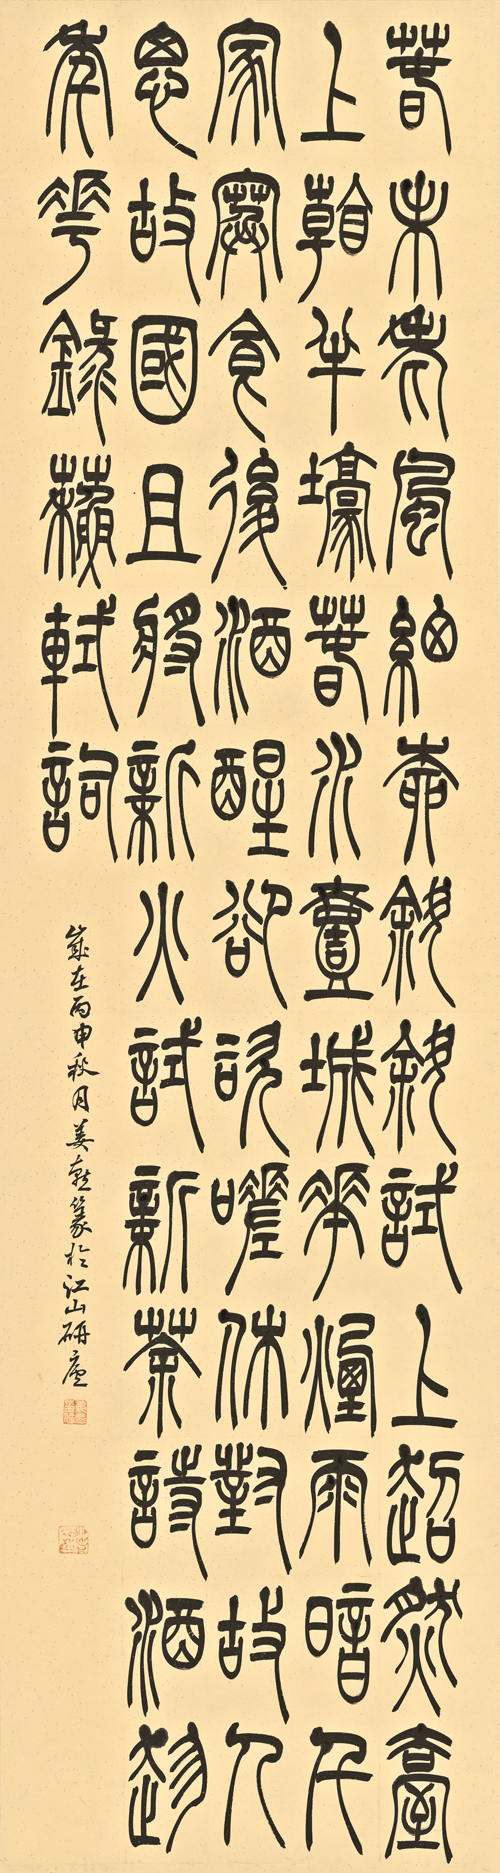 春未老風細柳斜斜試上超然臺
上看半壕春水壹城花煙雨暗千
家寒食後酒醒卻咨嗟休對故人
思故國且將新火試新茶詩酒趁
年華錄蘇軾詞
歲在丙申秋月姜乾篆於江山研廬